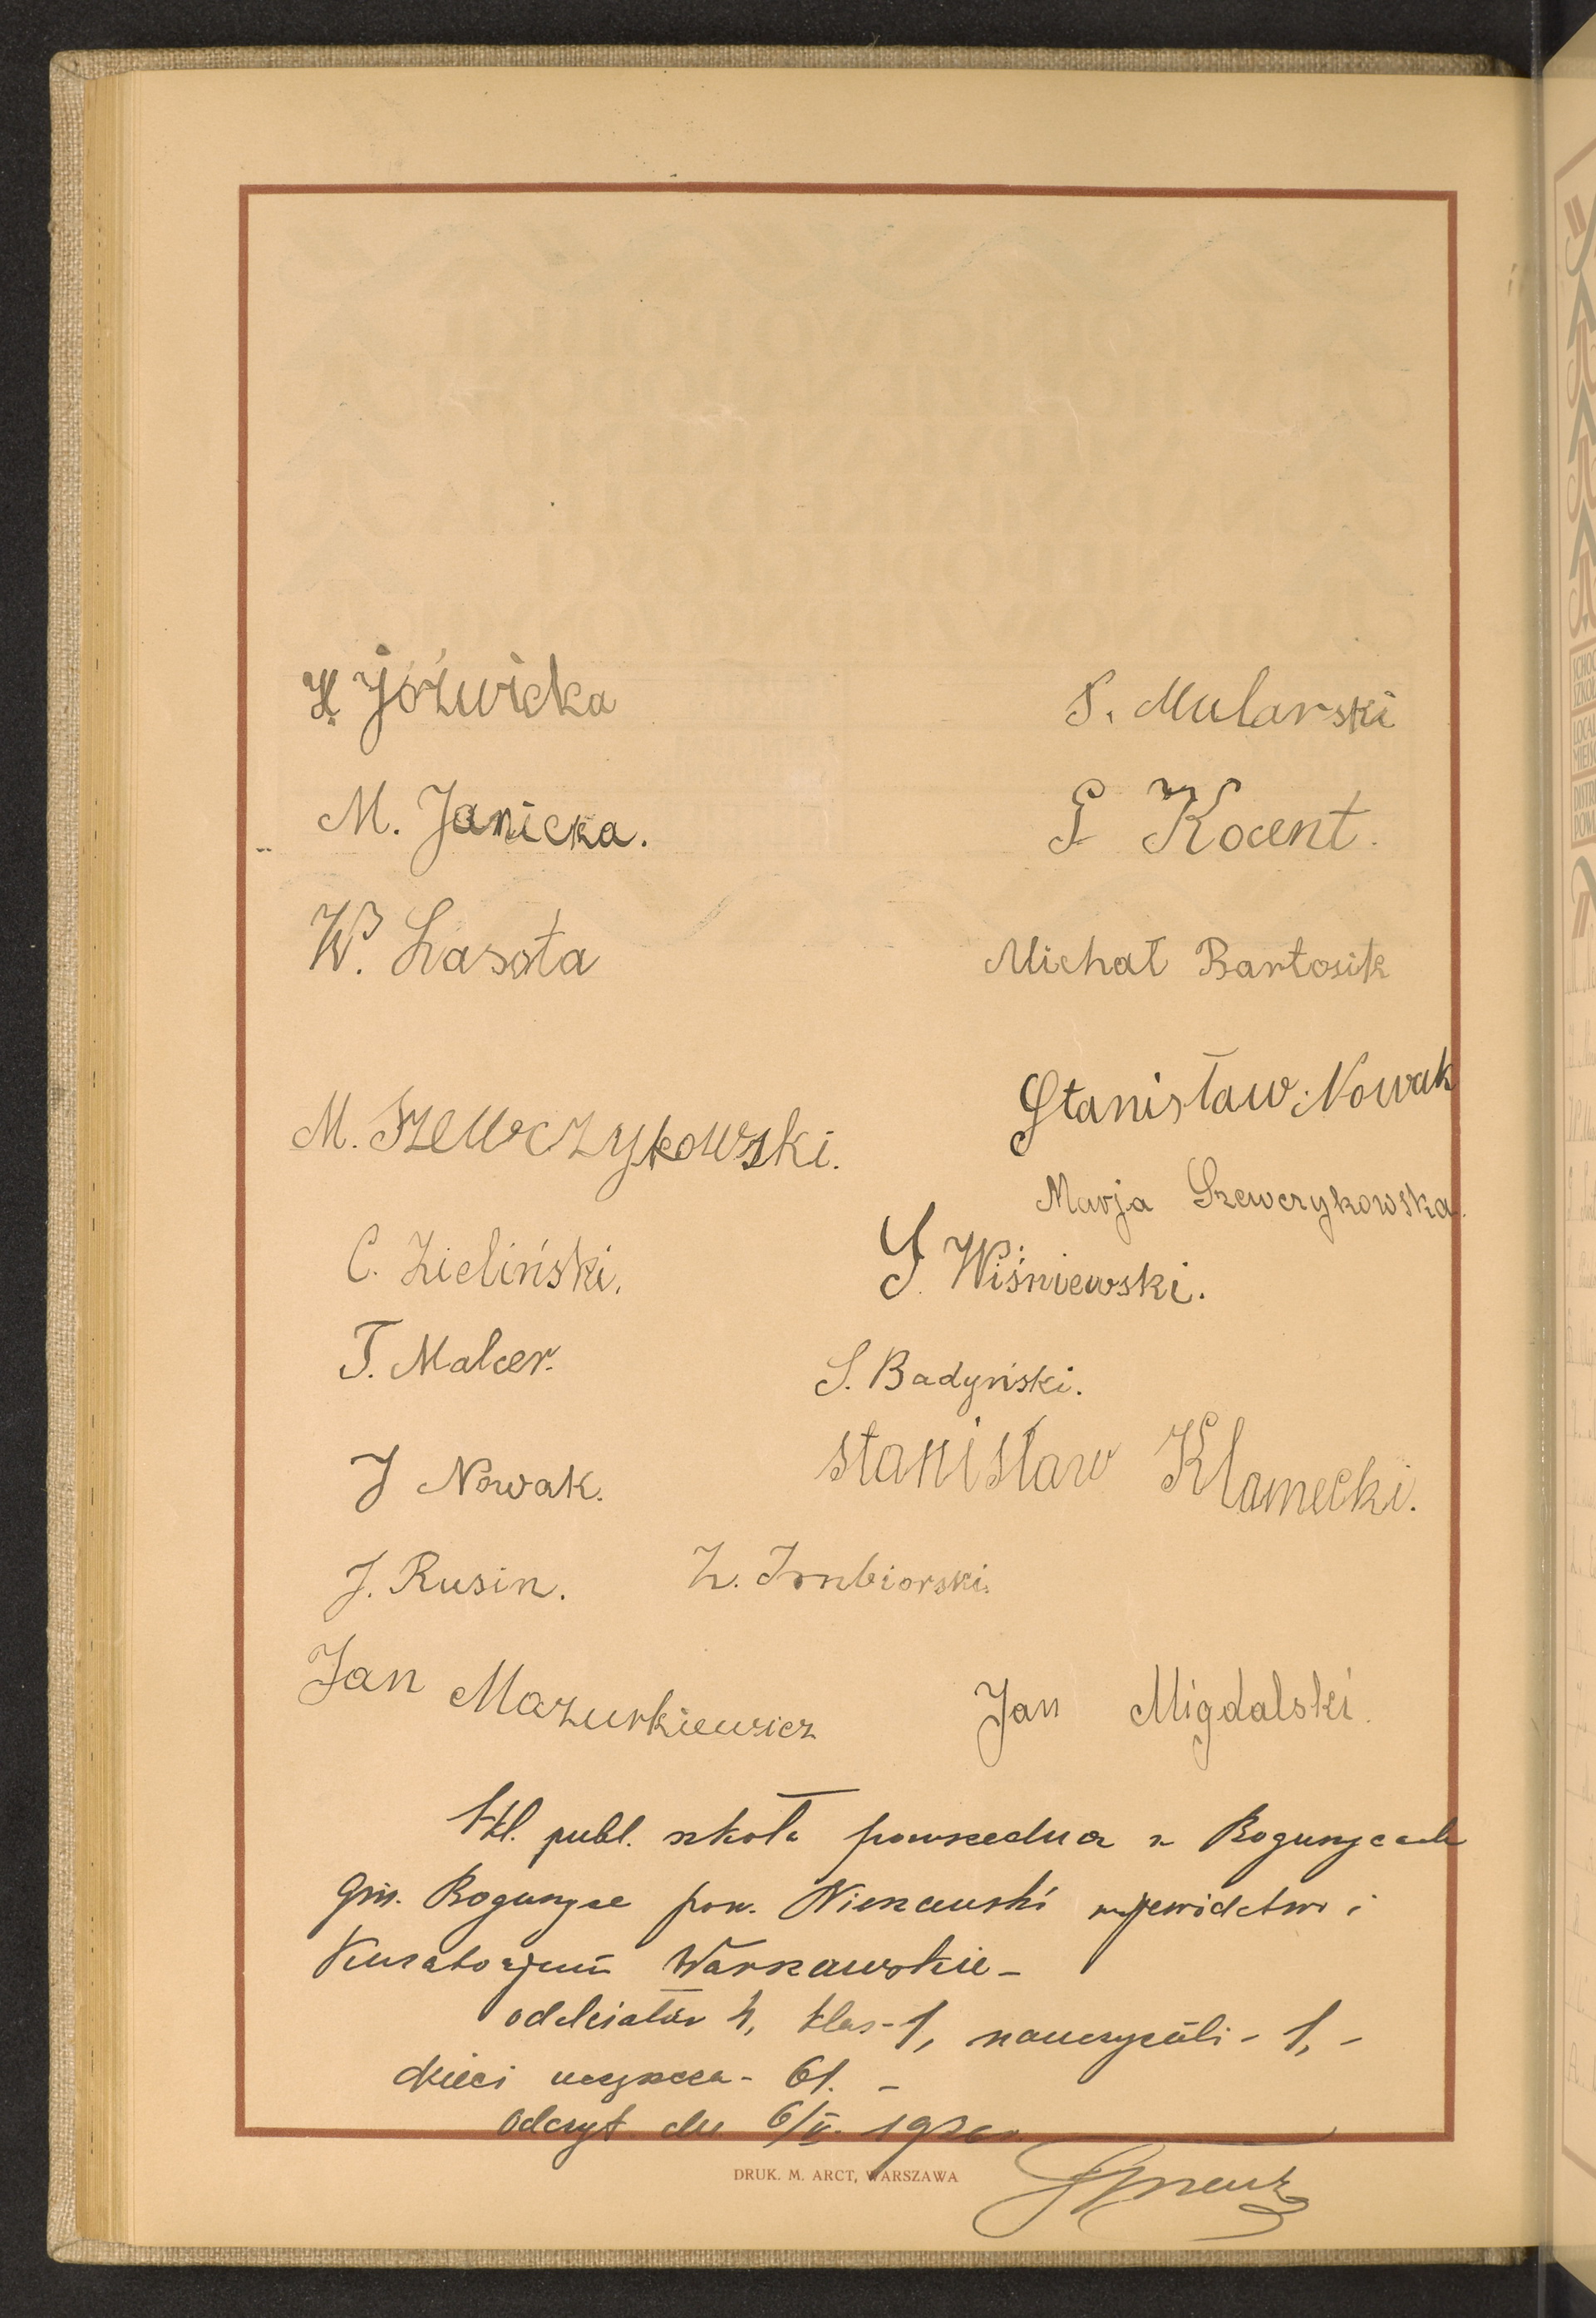 H. Jóźwicka
S. Mularski
M. Janicka.
S Kocent.
W. Lasota
Michał Bartosik
Stanisław Nowak
M. Szewczykowski.
Marja Szewczykowska.
C. Zieliński.
S. Wiśniewski.
T. Malcer.
S. Badyński.
J Nowak.
stanisław Klamecki.
J. Rusin.
Z. Imbiorski.
Jan Mazurkiewicz
Jan Migdalski.
1 kl. publ. szkoła powszechna w Boguszycach
gm. Boguszyce pow. Nieszawski województwo i
Kuratorjum Warszawskie -
oddziałów 4, klas - 1, nauczycieli - 1, -
dzieci uczęszcza - 61. -
Odczyt dn 6/V. 1926
DRUK. M. ARCT, WARSZAWA